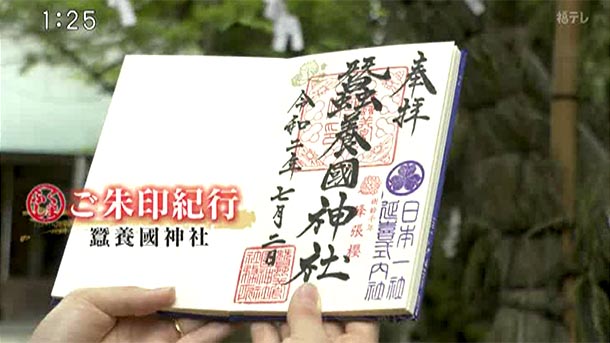 1:25
福テレ
奉拝
日本一社
延喜式内社
峰張櫻
蚕養國神社
令和二年七月二日
ご朱印紀行
蠶養國神社